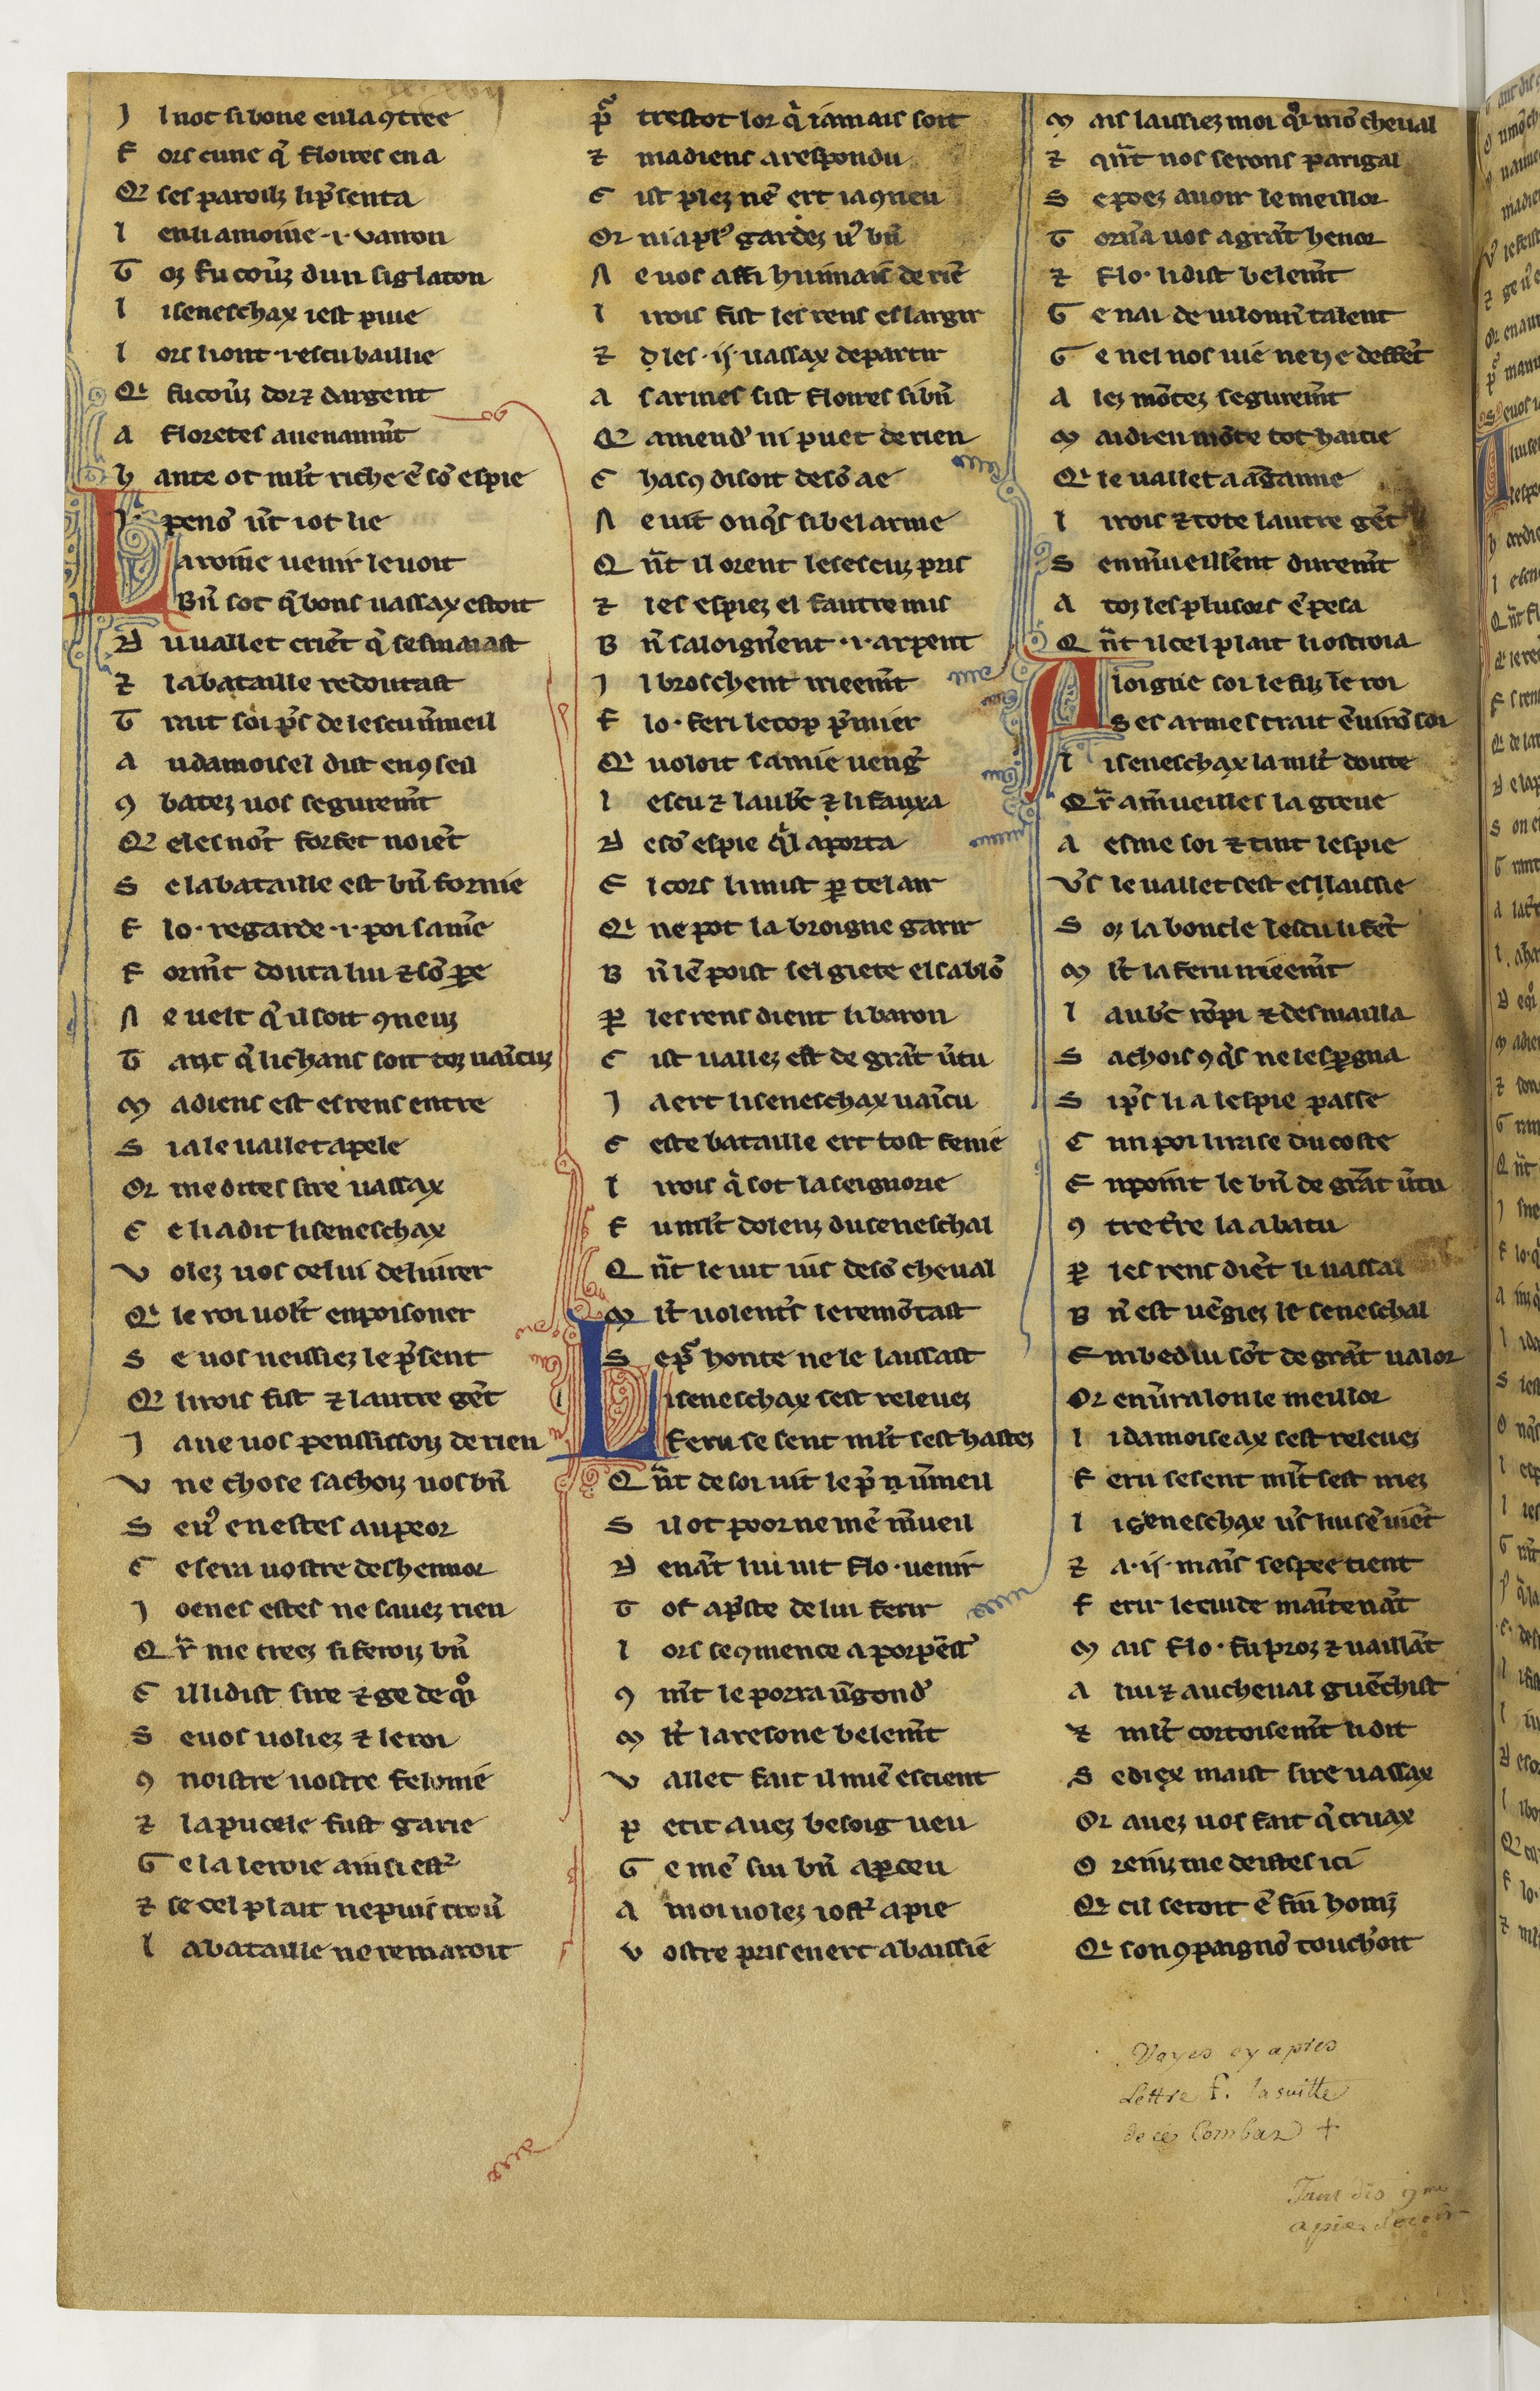 J l not si bone en la ɔtree
F ors cune q̄ Floires en a
Q̄ ses paroilz li p̄senta
L en li amoine .i. vairon
T oz fu couūz dun siglaton
L i seneschax i est p̄uie
L ors li ont .i. escu baillie
Q̄ fu couūz dor ⁊ dargent
A floretes auenanm̄t
h ante ot ml̄t riche ē sō espie
L aroine uenir le uoit
Bn̄ sot q̄ bons uassax estoit
D u uallet criēt q̄ sesmaiast
⁊ la bataille redoutast
T rait soi p̄s de lescu ūmeil
A u damoisel dist en ɔseil
ɔ batez uos segurem̄t
Q̄ eles nōt forfet noiēt
S e la bataille est bn̄ fornie
F lo. regarde .i. poi samie
F orm̄t douta lui ⁊ sō pe
N e uelt q̄ il soit ɔneuz
T ant q̄ li chans soit toz uaīcuz
M adiens est es rens entre
S i a le uallet apele
Or me dites sire uassax
C e li a dit li seneschax
V olez uos celui deliurer
Q̄ le roi uolt enpoisoner
S e uos neussiez le p̄sent
Q̄ li rois fist ⁊ lautre gēt
J a ne uos penssissoiz de rien
V ne chose sachoiz uos bn̄
S en enestes au peor
C e sera uostre deshennor
J oenes estes ne sauez rien
Q r̄ me creez si feroiz bn̄
C il li dist sire ⁊ ge de qoi
S e uos uoliez ⁊ le roi
ɔ noistre uostre felonie
⁊ la pucele fust garie
G e la leroie ainsi est
⁊ se cel plait ne puis trou
L a bataille ne remaroit
P trestot lor q̄ iamais soit
⁊ madiens a respondu
C ist plez nē ert ia ɔneu
Or ni a pl gardez u bn̄
N e uos affi huimais de riē
L i rois fist les rens eslargir
⁊ les .ij. uassax departir
A s armes sist floires si bn̄
Q̄ amend ni puet de rien
C hasɔ disoit de sō ae
N e uit onq̄s si bel arme
Q n̄t il orent les escuz pris
⁊ les espiez el fautre mis
B n̄ saloignent .i. arpent
J l broschent irieem̄t
F lo. feri le cop p̄mier
Q̄ uoloit samie ueng
L escu ⁊ laubc ⁊ li fauxa
D e sō espie q̄l aporta
E l cors li mist p̄ tel air
Q̄ ne pot la broigne garir
B n̄ lē poist sel giete el sablō
P les rens dient li baron
C ist uallez est de grāt ūtu
J a ert li seneschax uaīcu
C este bataille ert tost fenie
L i rois q̄ sot la seignorie
F u ml̄t dolenz du seneschal
Q n̄t le uit ius de sō cheual
M l̄t uolent̄s le remōtast
S e p honte ne le laissast
L i seneschax sest releuez
Feru se sent ml̄t sest hastez
Q n̄t de soi uit le p̄ n ūmeil
S il ot poor ne mē m̄ueil
D enāt lui uit flo. uenir
T ot ap̄ste de lui ferir
L ors seɔmence a porpēss
ɔ m̄t le porra ūgond
M l̄t laresone belem̄t
V allet fait il miē escient
P etit auez besoig ueu
G e mē sui bn̄ ap̄ceu
A moi uolez iost a pie
V ostre pris en ert abaissie
M ais laissiez moi q̄rr mō cheual
⁊ qn̄t nos serons parigal
S e poez auoir le meillor
T orn̄a uos a grāt henor
⁊ Flo. li dist belem̄t
G e nai de uilonn̄ talent
G e nel nos uié ne ne deffēt
A lez mōtez segurem̄t
M aidieu mōte tot haitie
Q̄ le uallet a agānie
L i rois ⁊ tote lautre gēt
S en m̄ueillēnt durem̄t
A toz les plusors ē pesa
Q n̄t il cel plait li ostroia
A loigne soi le fiz le roi
S es armes trait ēuirō soi
L i seneschax la ml̄t doute
Q r̄ a m̄ueilles la greue
A esme soi ⁊ tint lespie
V̄s le uallet sest eslaissie
S oz la boucle lescu li fēt
M l̄t la feru irieem̄t
L aubc rōpi ⁊ desmailla
S achois ɔq̄s ne lesp̄gna
S ip̄s li a lespie passe
C un poi li rase du coste
E npoint le bn̄ de grāt ūtu
ɔ tre tr̄e la abatu
P les rens diēt li uassal
B n̄ est uēgiez le seneschal
E mbedui sōt de grāt ualor
Or en ūra lon le meillor
L i damoiseax sest releuez
F eru se sent ml̄t sest iriez
L i seneschax ūs lui sē uiēt
⁊ a .ij. maīs sespee tient
F erir le cuide maītenāt
M ais flo. fu proz ⁊ uaillāt
A lui ⁊ au cheual guēchist
⁊ ml̄t cortoisem̄t li dit
S e diex maist sire uassax
Or auez uos fait q̄ cruax
Q̄ cil seroit ē fin honiz
Q̄ son ɔpaignō touchoit
Voyes cy apres
Lettre F. la suitte
de ce Combat +